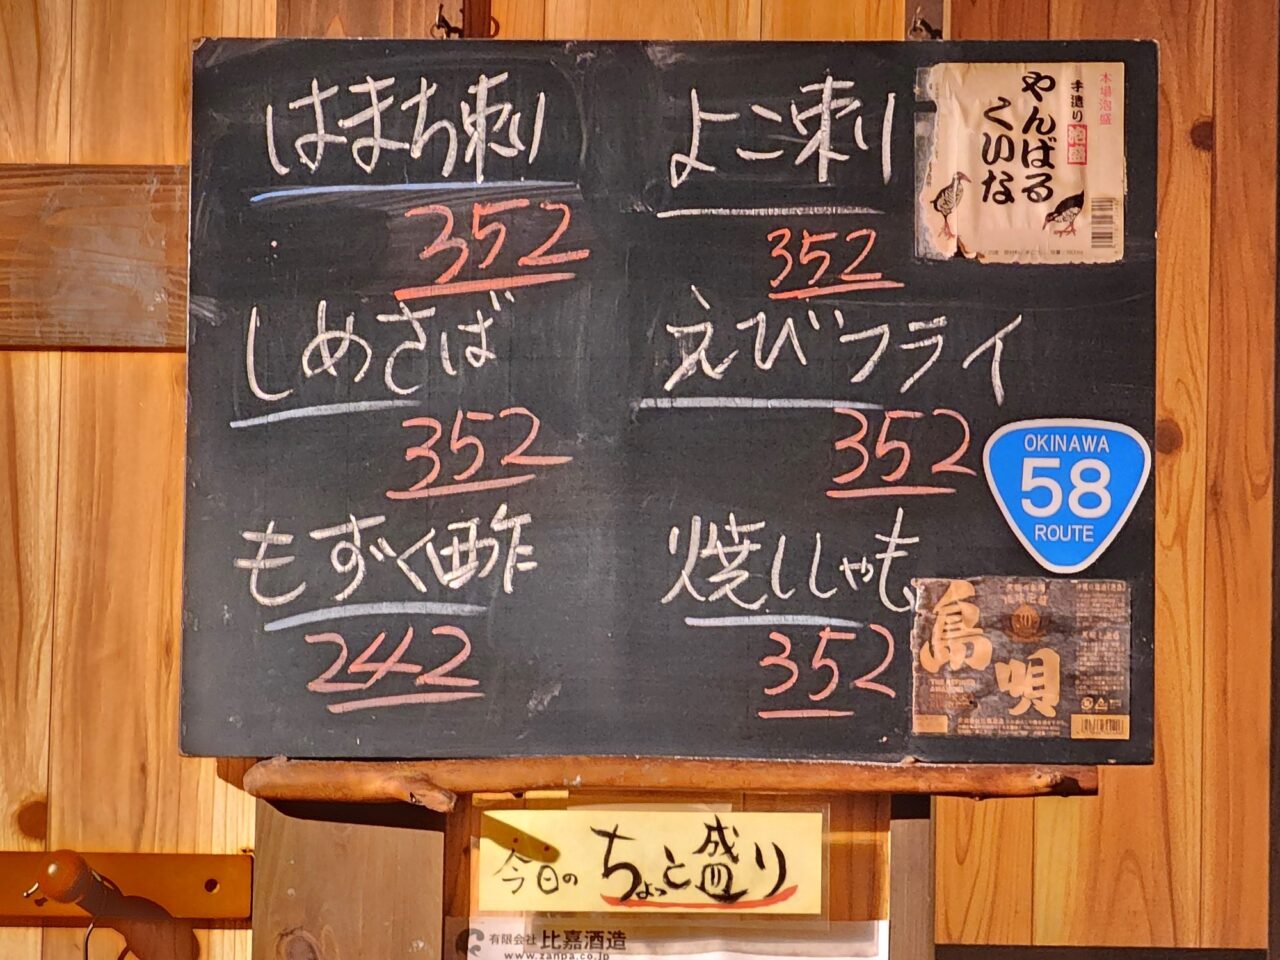 はまち刺
352
しめさば
352
もずく酢
242
よこ刺
352
えびフライ
352
焼ししゃも
352
本場泡盛
手造り 泡盛
やんばる
くいな
OKINAWA
58
ROUTE
島
唄
30
今日の ちょっと盛り
有限会社 比嘉酒造
www.zanpa.co.jp